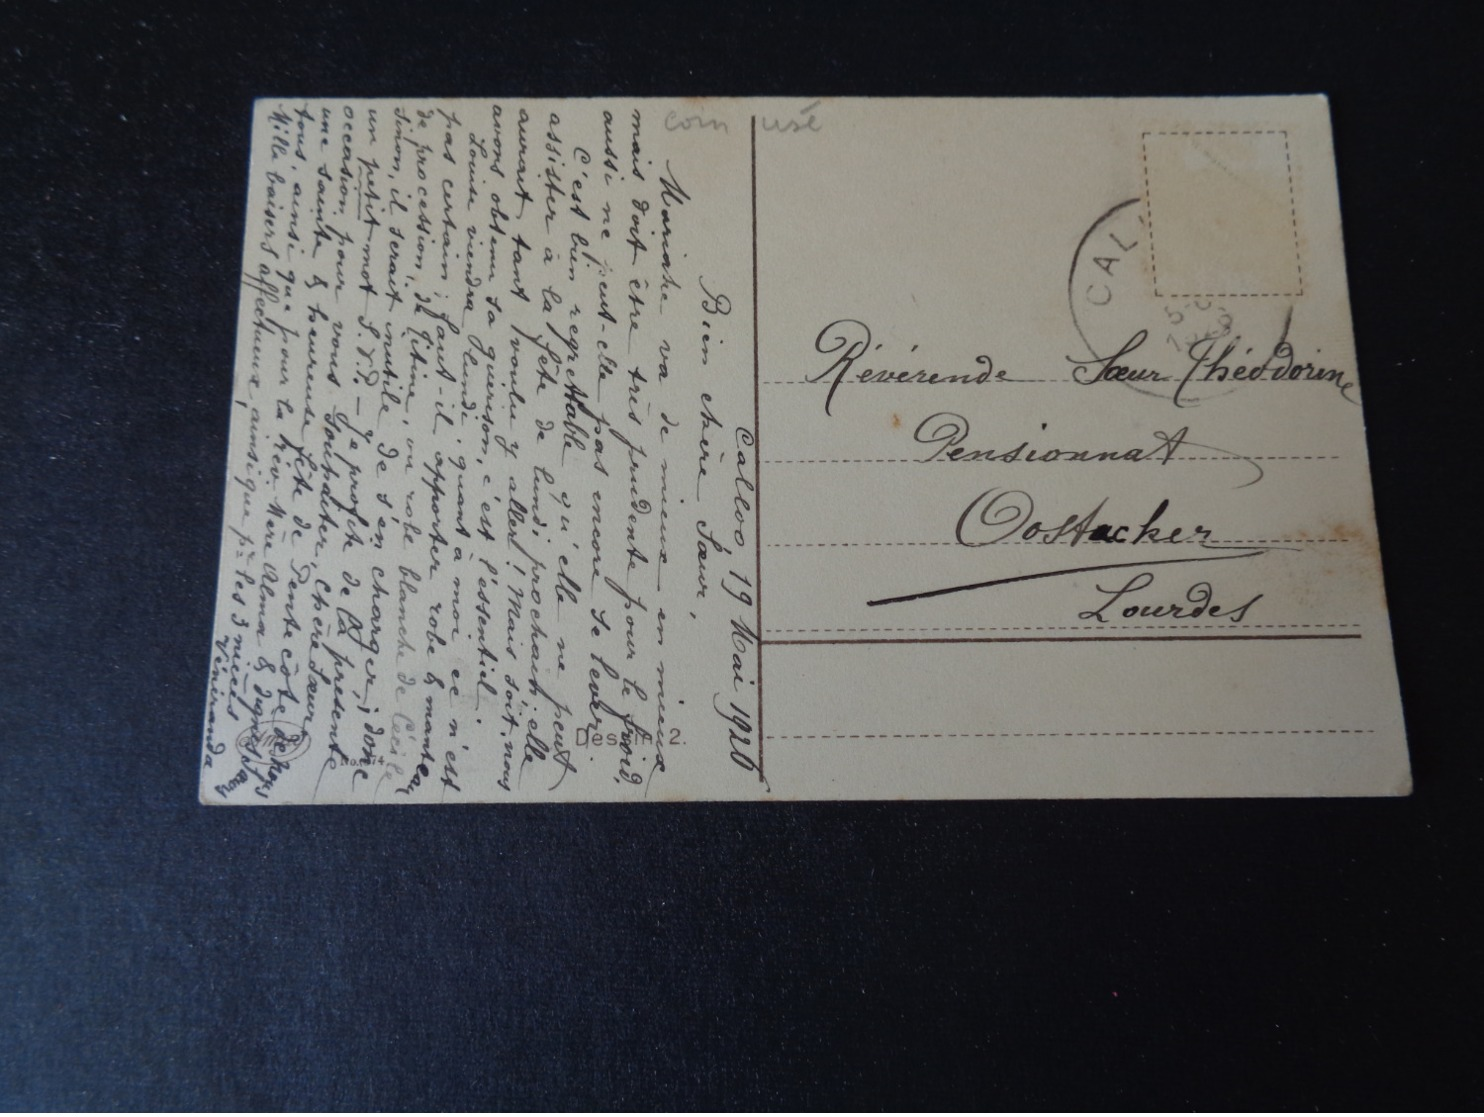 coin usé
Calloo, 19 Mai 1926
Bien chère Sœur,
va de mieux en mieux
mais doit être très prudente pour le froid,
aussi ne peut-elle pas encore se lever.
C'est bien regrettable qu'elle ne peut
assister à la fête de lundi prochain; elle
aurait tant voulu y aller! Mais soit, nous
avons obtenu sa guérison, c'est l'essentiel.
Louise viendra lundi; quant à moi ce n'est
pas certain; faut-il apporter robe & manteau
de procession de Titine, ou robe blanche de Cécile
Sinon, il serait inutile de s'en charger; donc
un petit mot S.V.P. - Je profite de la présente
occasion pour vous souhaiter, Chère Sœur
une sainte & heureuse fête de Pentecôte de nous
tous, ainsi que pour la Rév. Mère Alma &
Mille baisers affectueux, ainsi que pr les 3 nièces
Véneranda
Dessin 2.
CAL
Révérende Sœur Théodorine
Pensionnat
Oostacker
Lourdes